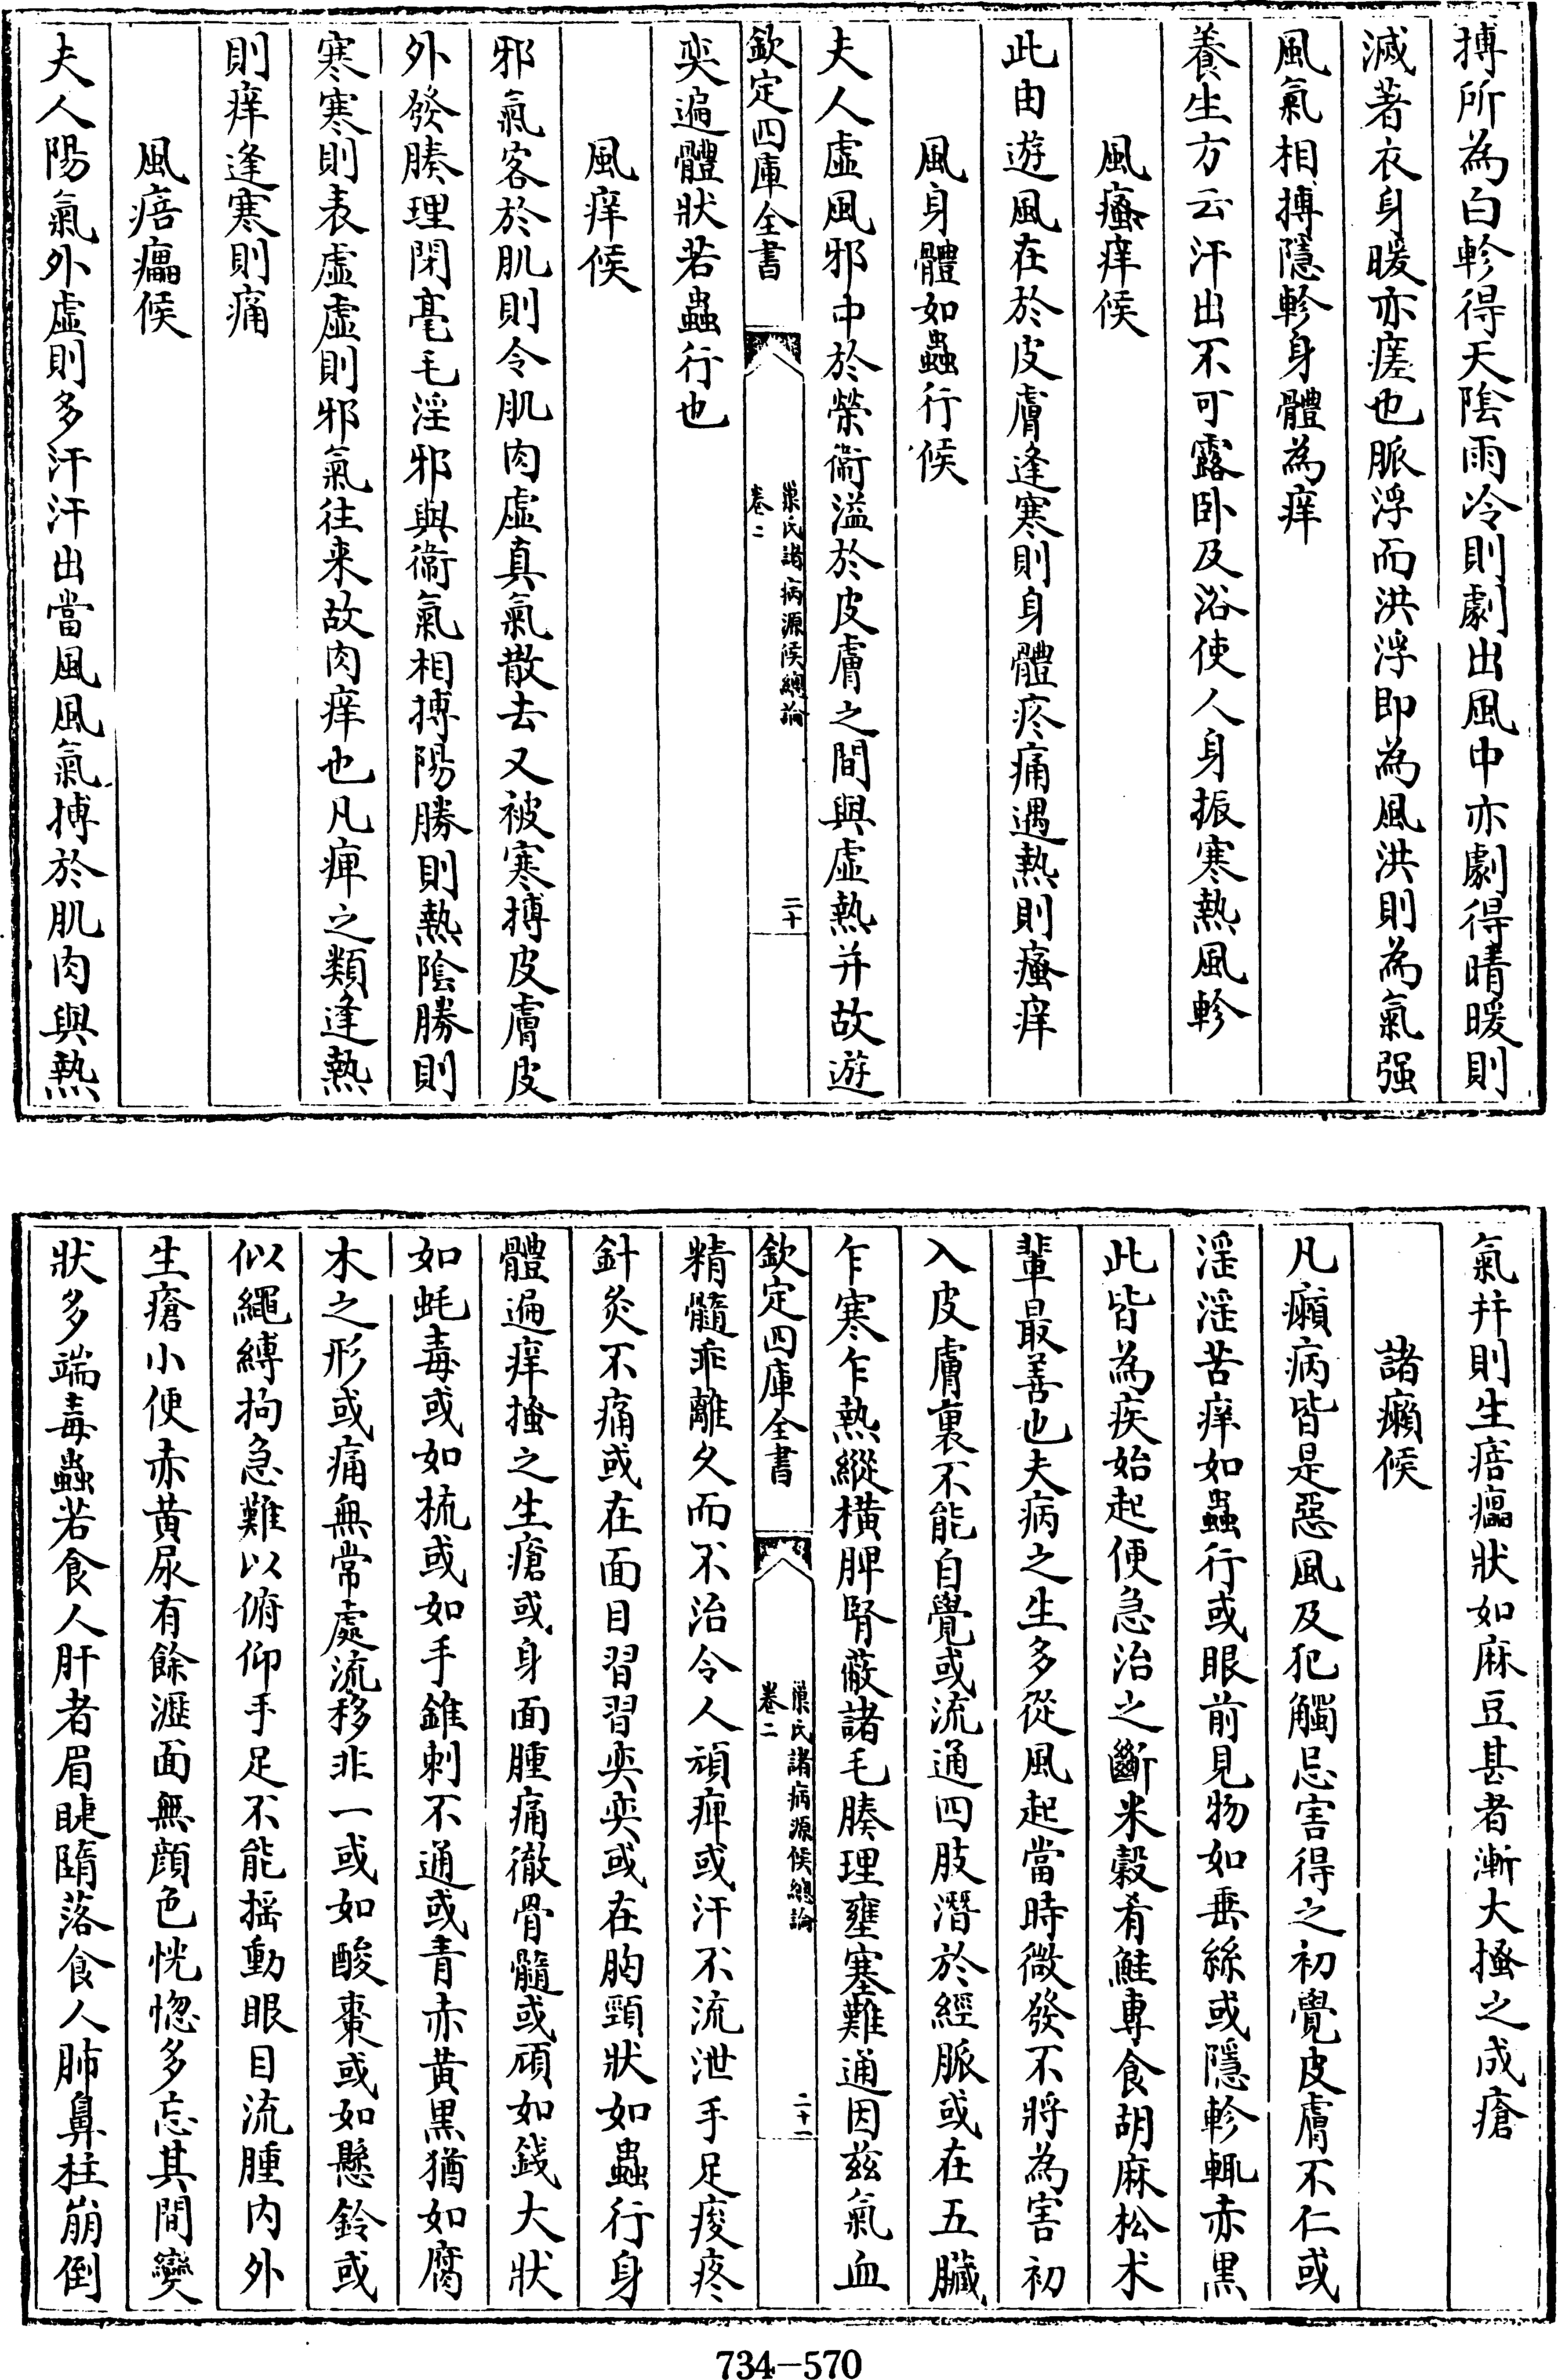 搏所為白軫得天陰雨冷則劇出風中亦劇得晴暖則
滅著衣身暖亦瘥也脈浮而洪浮即為風洪則為氣强
風氣相搏隱軫身體為痒
養生方云汗出不可露卧及浴使人身振寒熱風軫
風瘙痒候
此由遊風在於皮膚逢寒則身體疼痛遇熱則瘙痒
風身體如蟲行候
夫人虛風邪中於榮衞溢於皮膚之間與虛熱并故遊
欽定四庫全書
巢氏諸病源候總論
卷二
二十
奕遍體狀若蟲行也
風痒候
邪氣客於肌則令肌肉虛真氣散去又被寒搏皮膚皮
外發腠理閉毫毛淫邪與衞氣相搏陽勝則熱陰勝則
寒寒則表虛虛則邪氣往来故肉痒也凡痺之類逢熱
則痒逢寒則痛
風㾦㿔候
夫人陽氣外虛則多汗汗出當風風氣搏於肌肉與熱
氣并則生㾦㿔狀如麻豆甚者漸大搔之成瘡
諸癩候
凡癩病皆是惡風及犯觸忌害得之初覺皮膚不仁或
淫淫苦痒如蟲行或眼前見物如垂絲或隱軫輒赤黒
此皆為疾始起便急治之斷米穀肴鮭專食胡麻松术
輩最善也夫病之生多從風起當時微發不將為害初
入皮膚裏不能自覺或流通四肢潛於經脈或在五臟
乍寒乍熱縱横脾腎蔽諸毛腠理壅塞難通因兹氣血
欽定四庫全書
巢氏諸病源候總論
卷二
二十一
精髓乖離久而不治令人頑痺或汗不流泄手足痠疼
針灸不痛或在面目習習奕奕或在胸頸狀如蟲行身
體遍痒搔之生瘡或身面腫痛徹骨髓或頑如錢大狀
如蚝毒或如梳或如手錐刺不通或青赤黄黒猶如腐
木之形或痛無常處流移非一或如酸棗或如懸鈴或
似繩縛拘急難以俯仰手足不能摇動眼目流腫内外
生瘡小便赤黄尿有餘瀝面無顔色恍惚多忘其間變
狀多端毒蟲若食人肝者眉睫隋落食人肺鼻柱崩倒
734-570